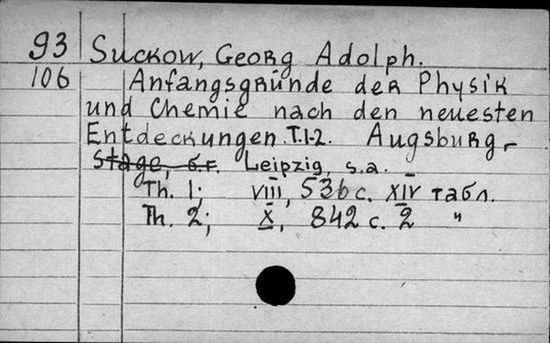 93 Suckow, Georg Adolph.
106 Anfangsgründe der Physik
und Chemie nach den neuesten
Entdeckungen. T.1-2. Augsburg-
Stage, б.г. Leipzig, s.a.
Th. 1; VIII, 536 с. XIV табл.
Th. 2; X, 842 с. 2 "